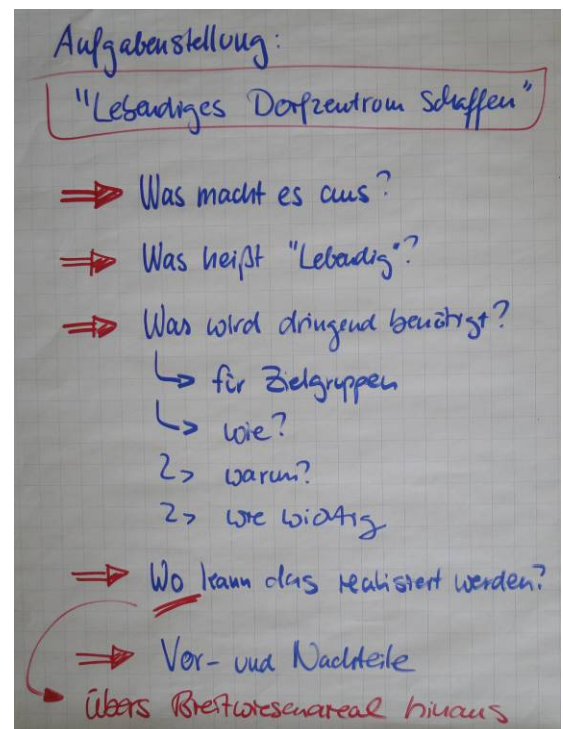 Aufgabenstellung:
"Lebendiges Dorfzentrum schaffen"
Was macht es aus?
Was heißt "Lebendig"?
Was wird dringend benötigt?
für Zielgruppen
wie?
warum?
wie wichtig
Wo kann das realisiert werden?
Vor- und Nachteile
übers Breitwiesenareal hinaus